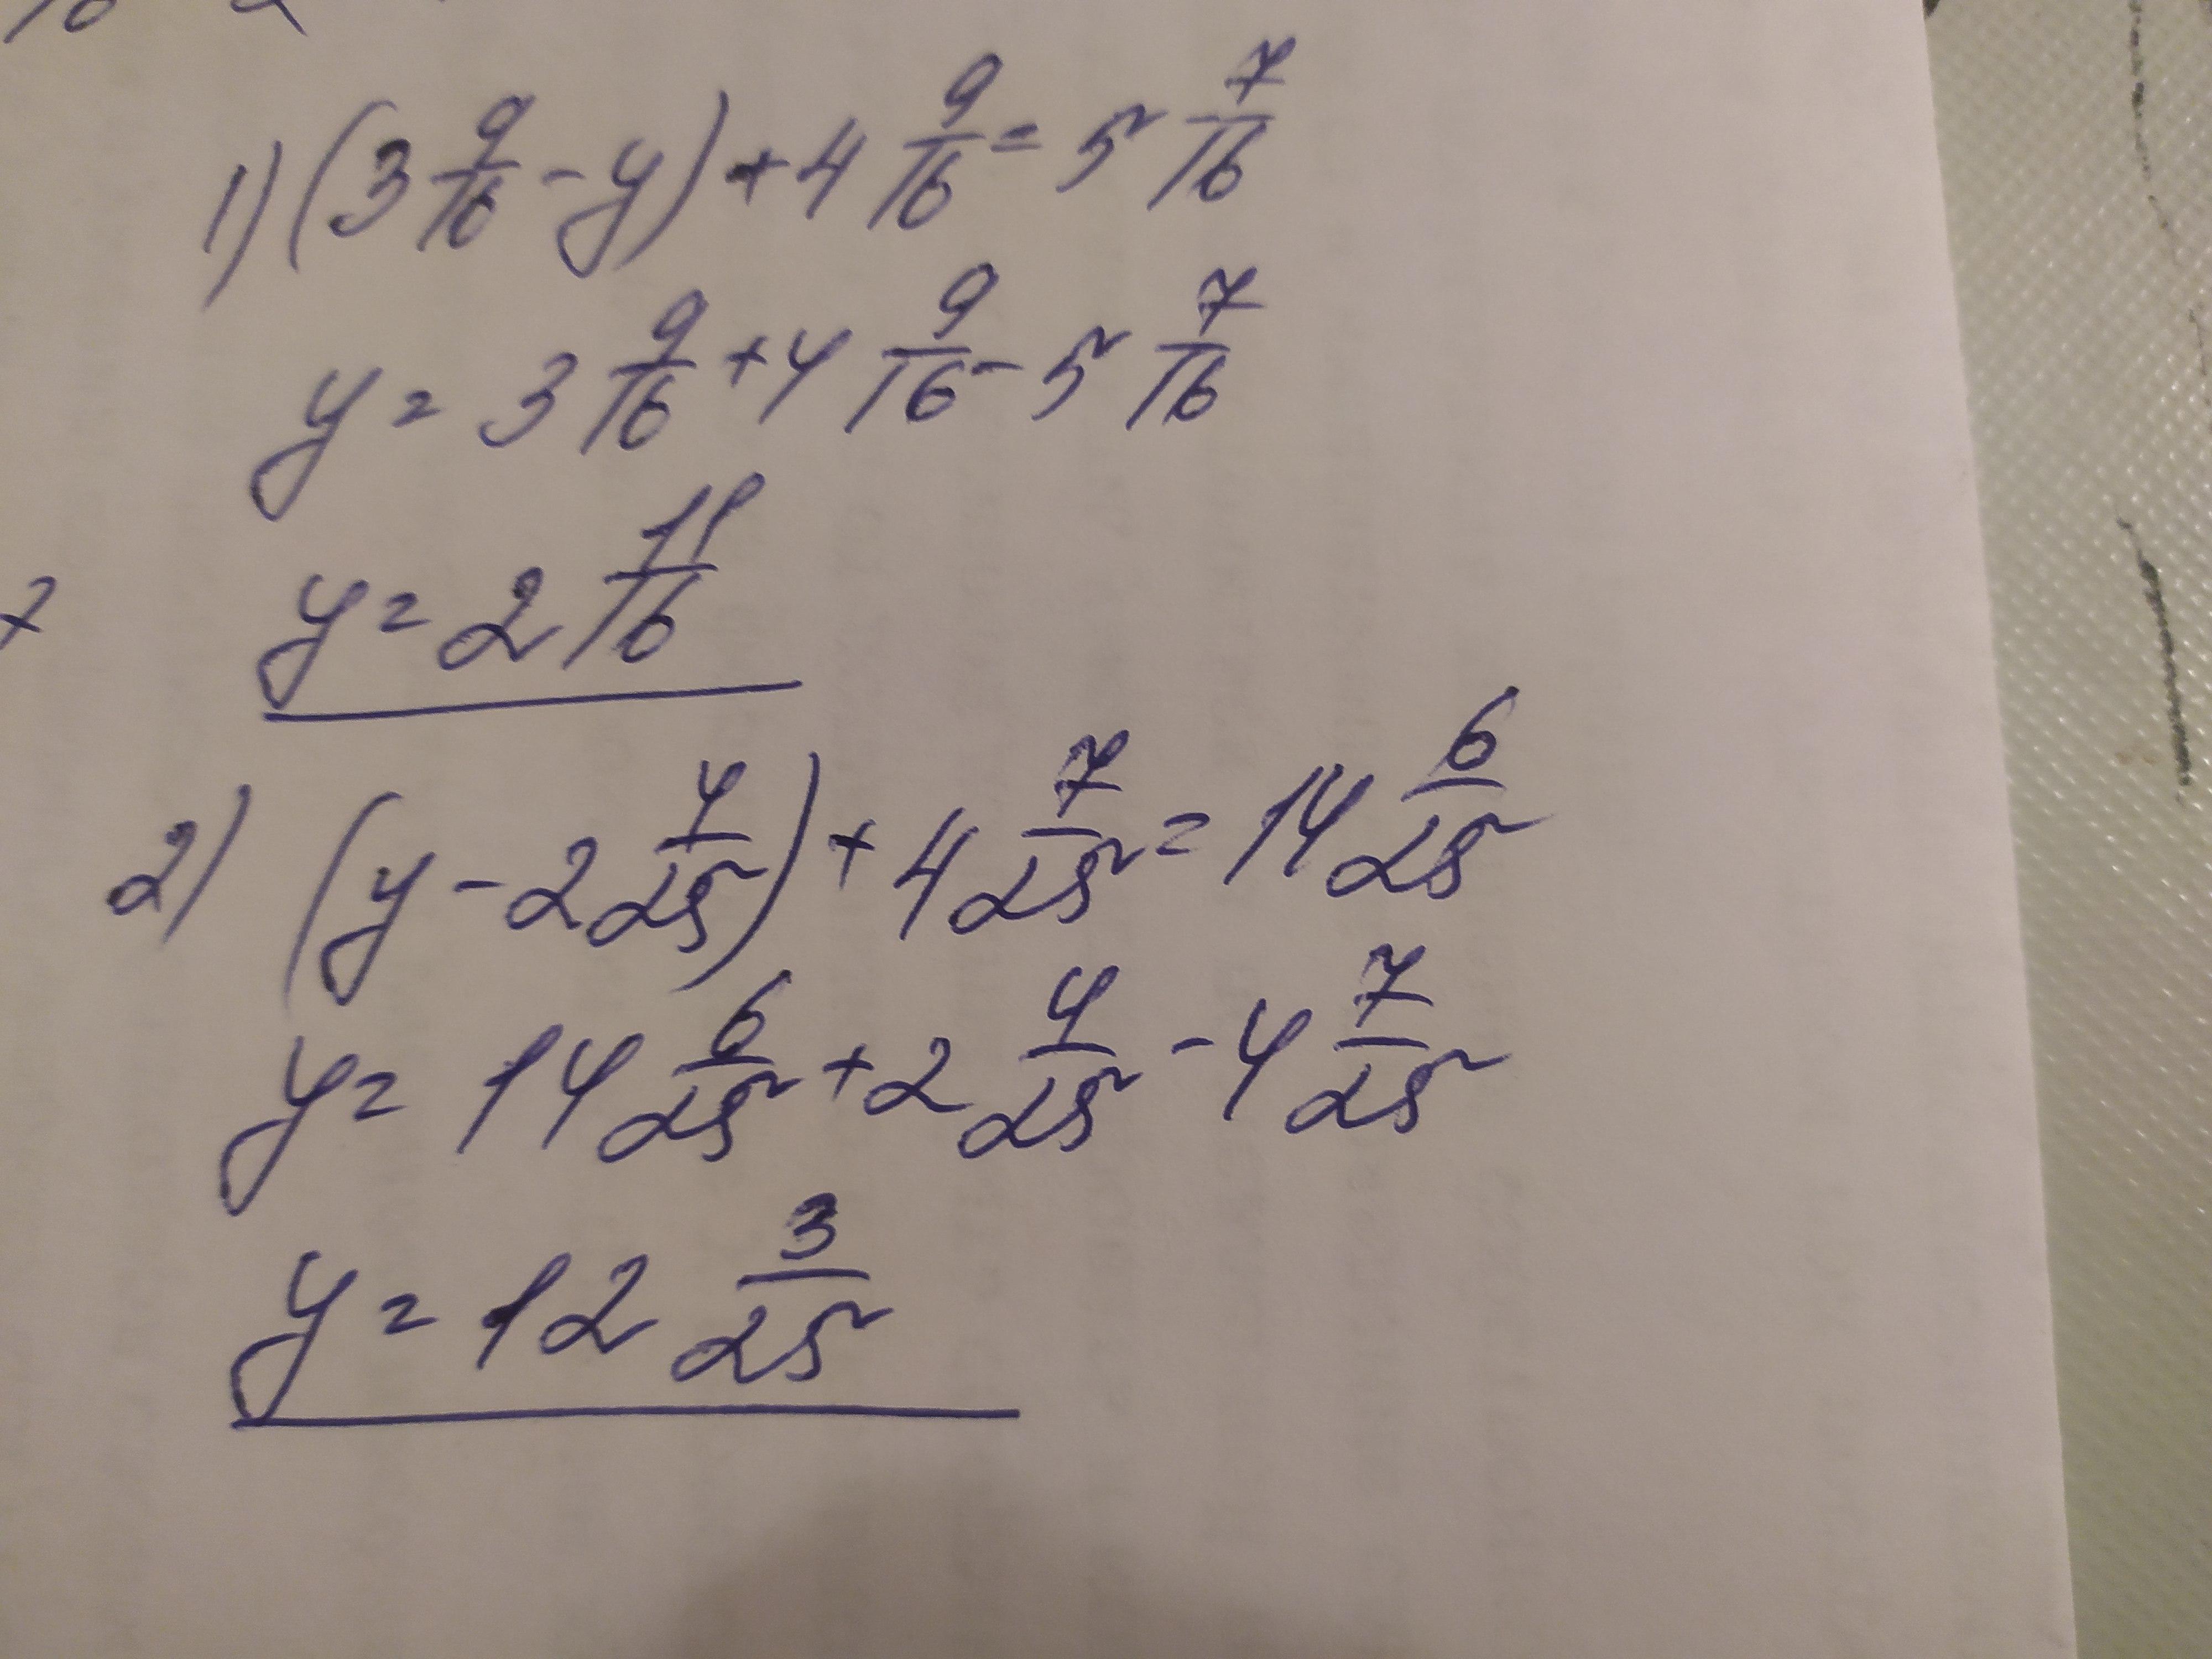 1) (3 9/16 - y) + 4 9/16 = 5 7/16
y = 3 9/16 + 4 9/16 - 5 7/16
y = 2 11/16
2) (y - 2 4/25) + 4 7/25 = 14 6/25
y = 14 6/25 + 2 4/25 - 4 7/25
y = 12 3/25